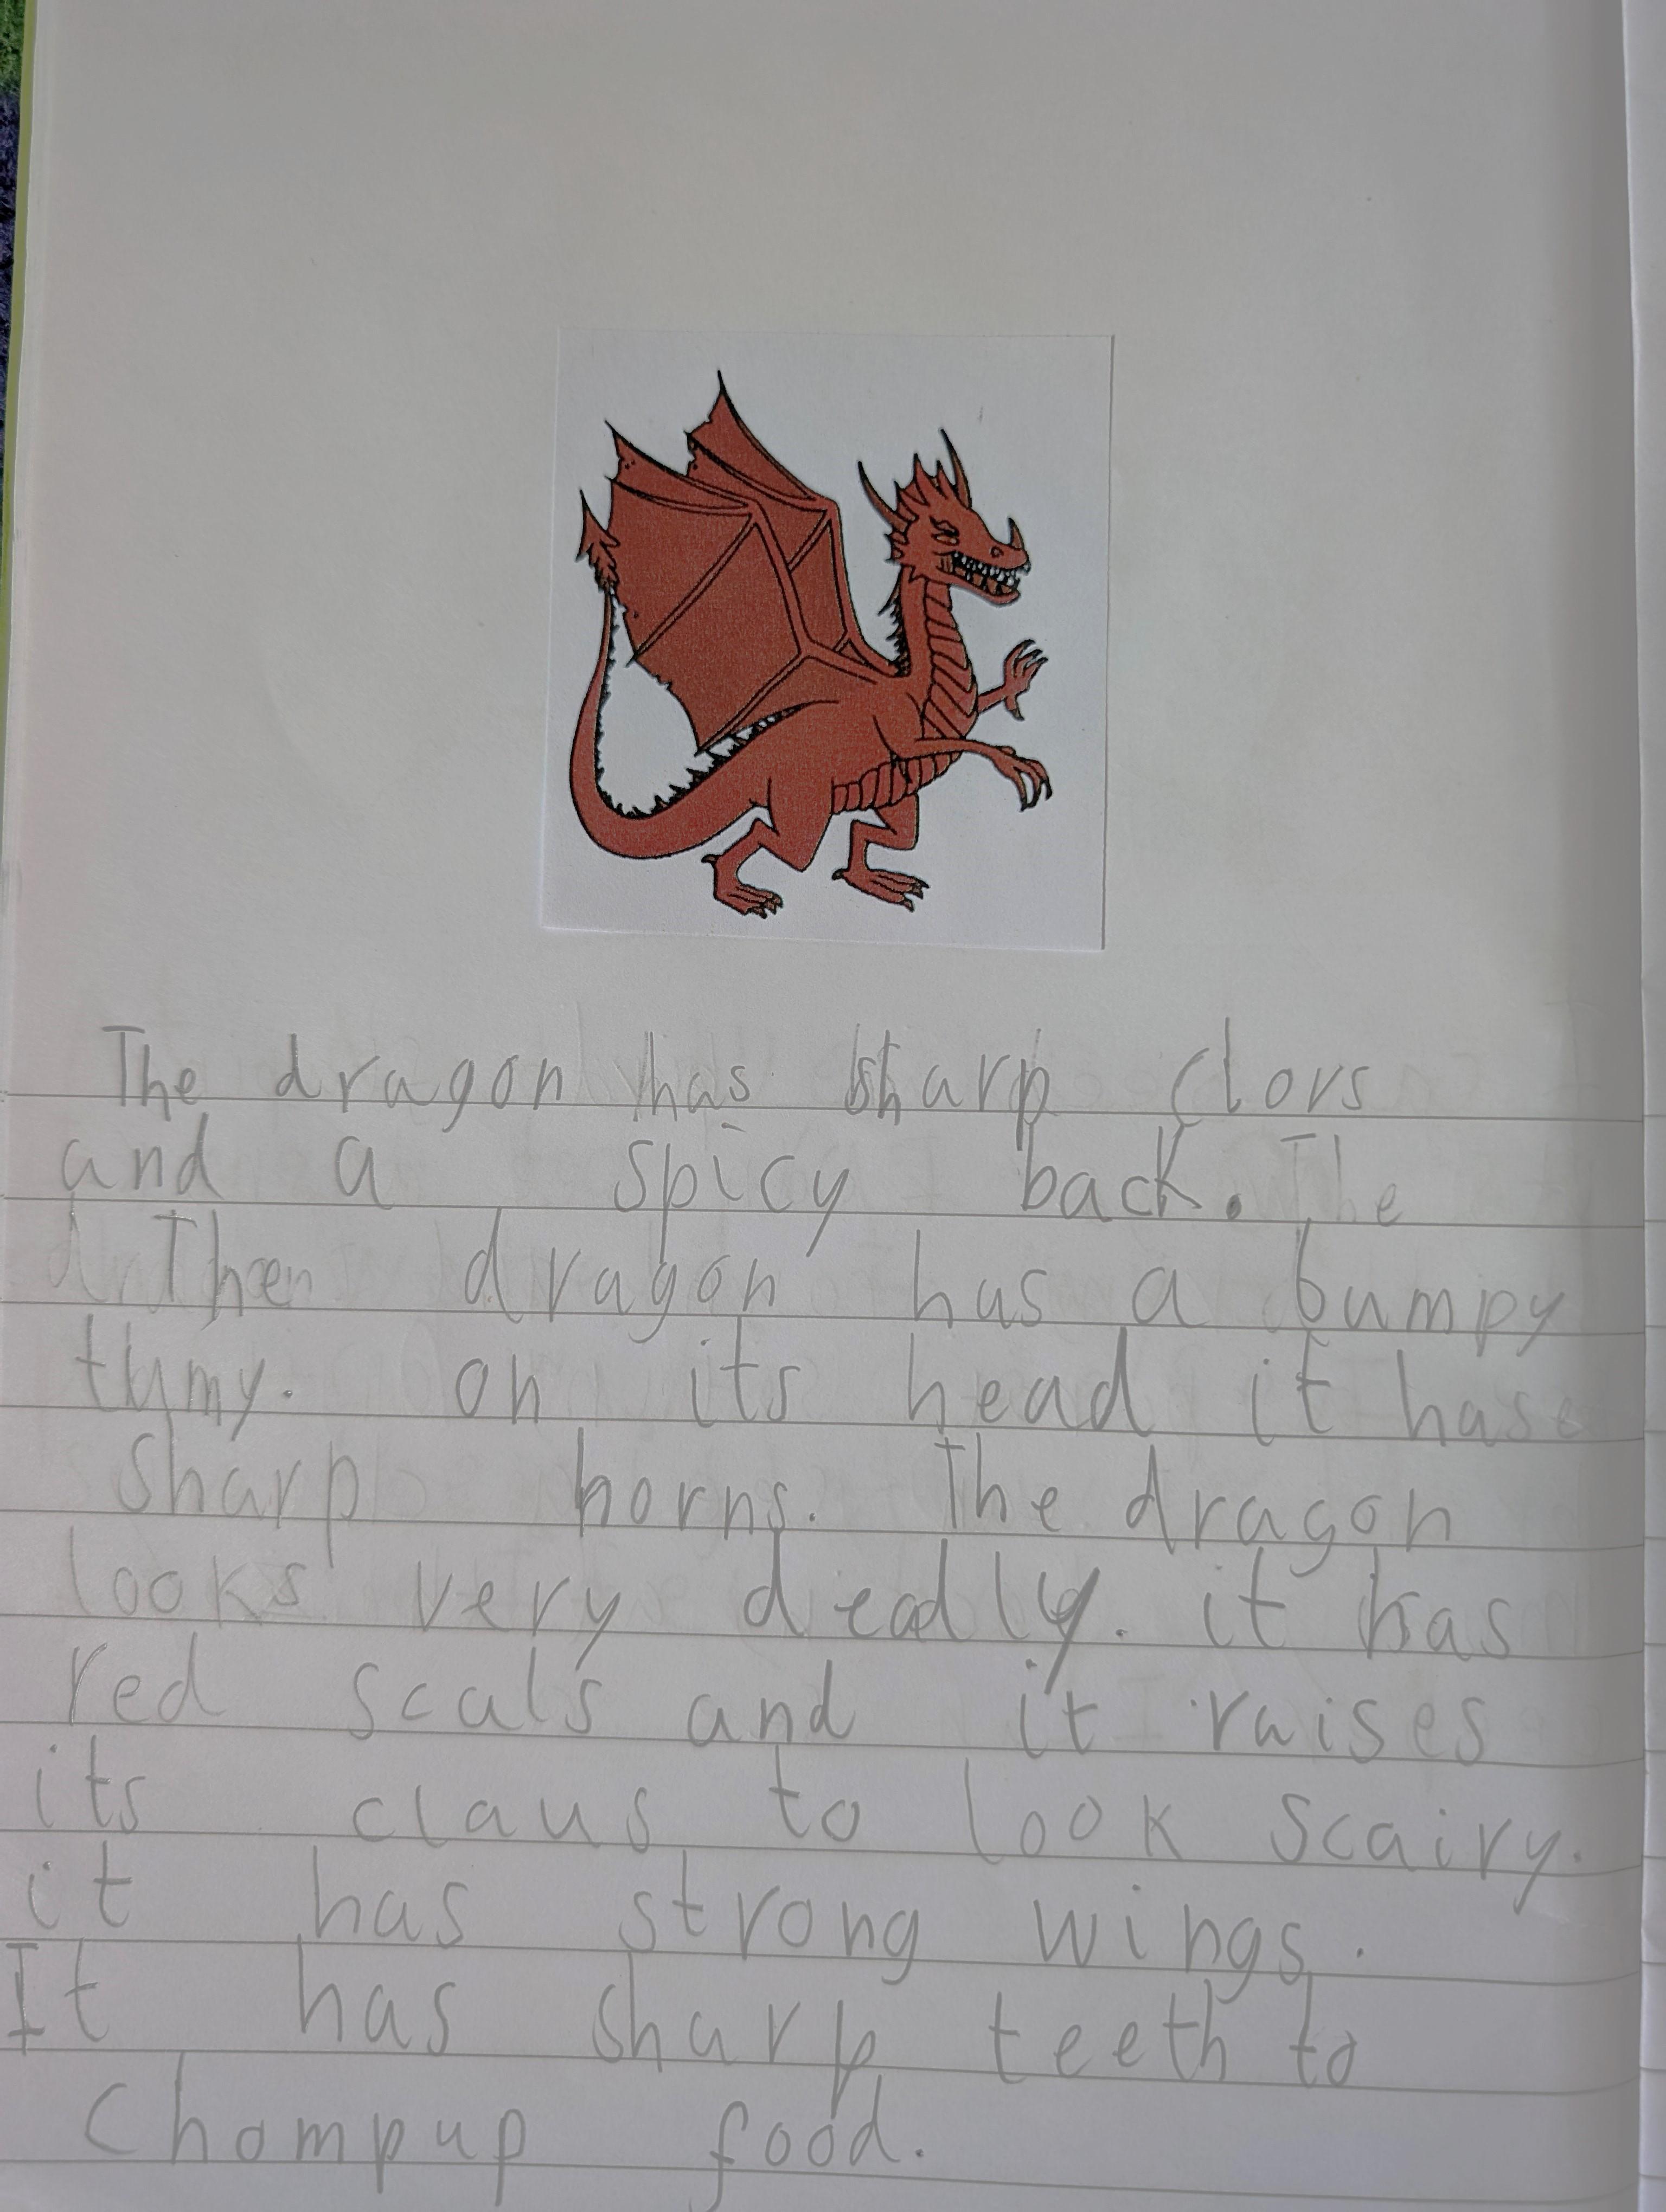 The dragon has sharp clors
and a spicy back. The
Then dragon has a bumpy
tumy. on its head it has
sharp horns. The dragon
looks very deadly. it has
red scals and it raises
its claus to look scairy.
it has strong wings.
It has sharp teeth to
chompup food.